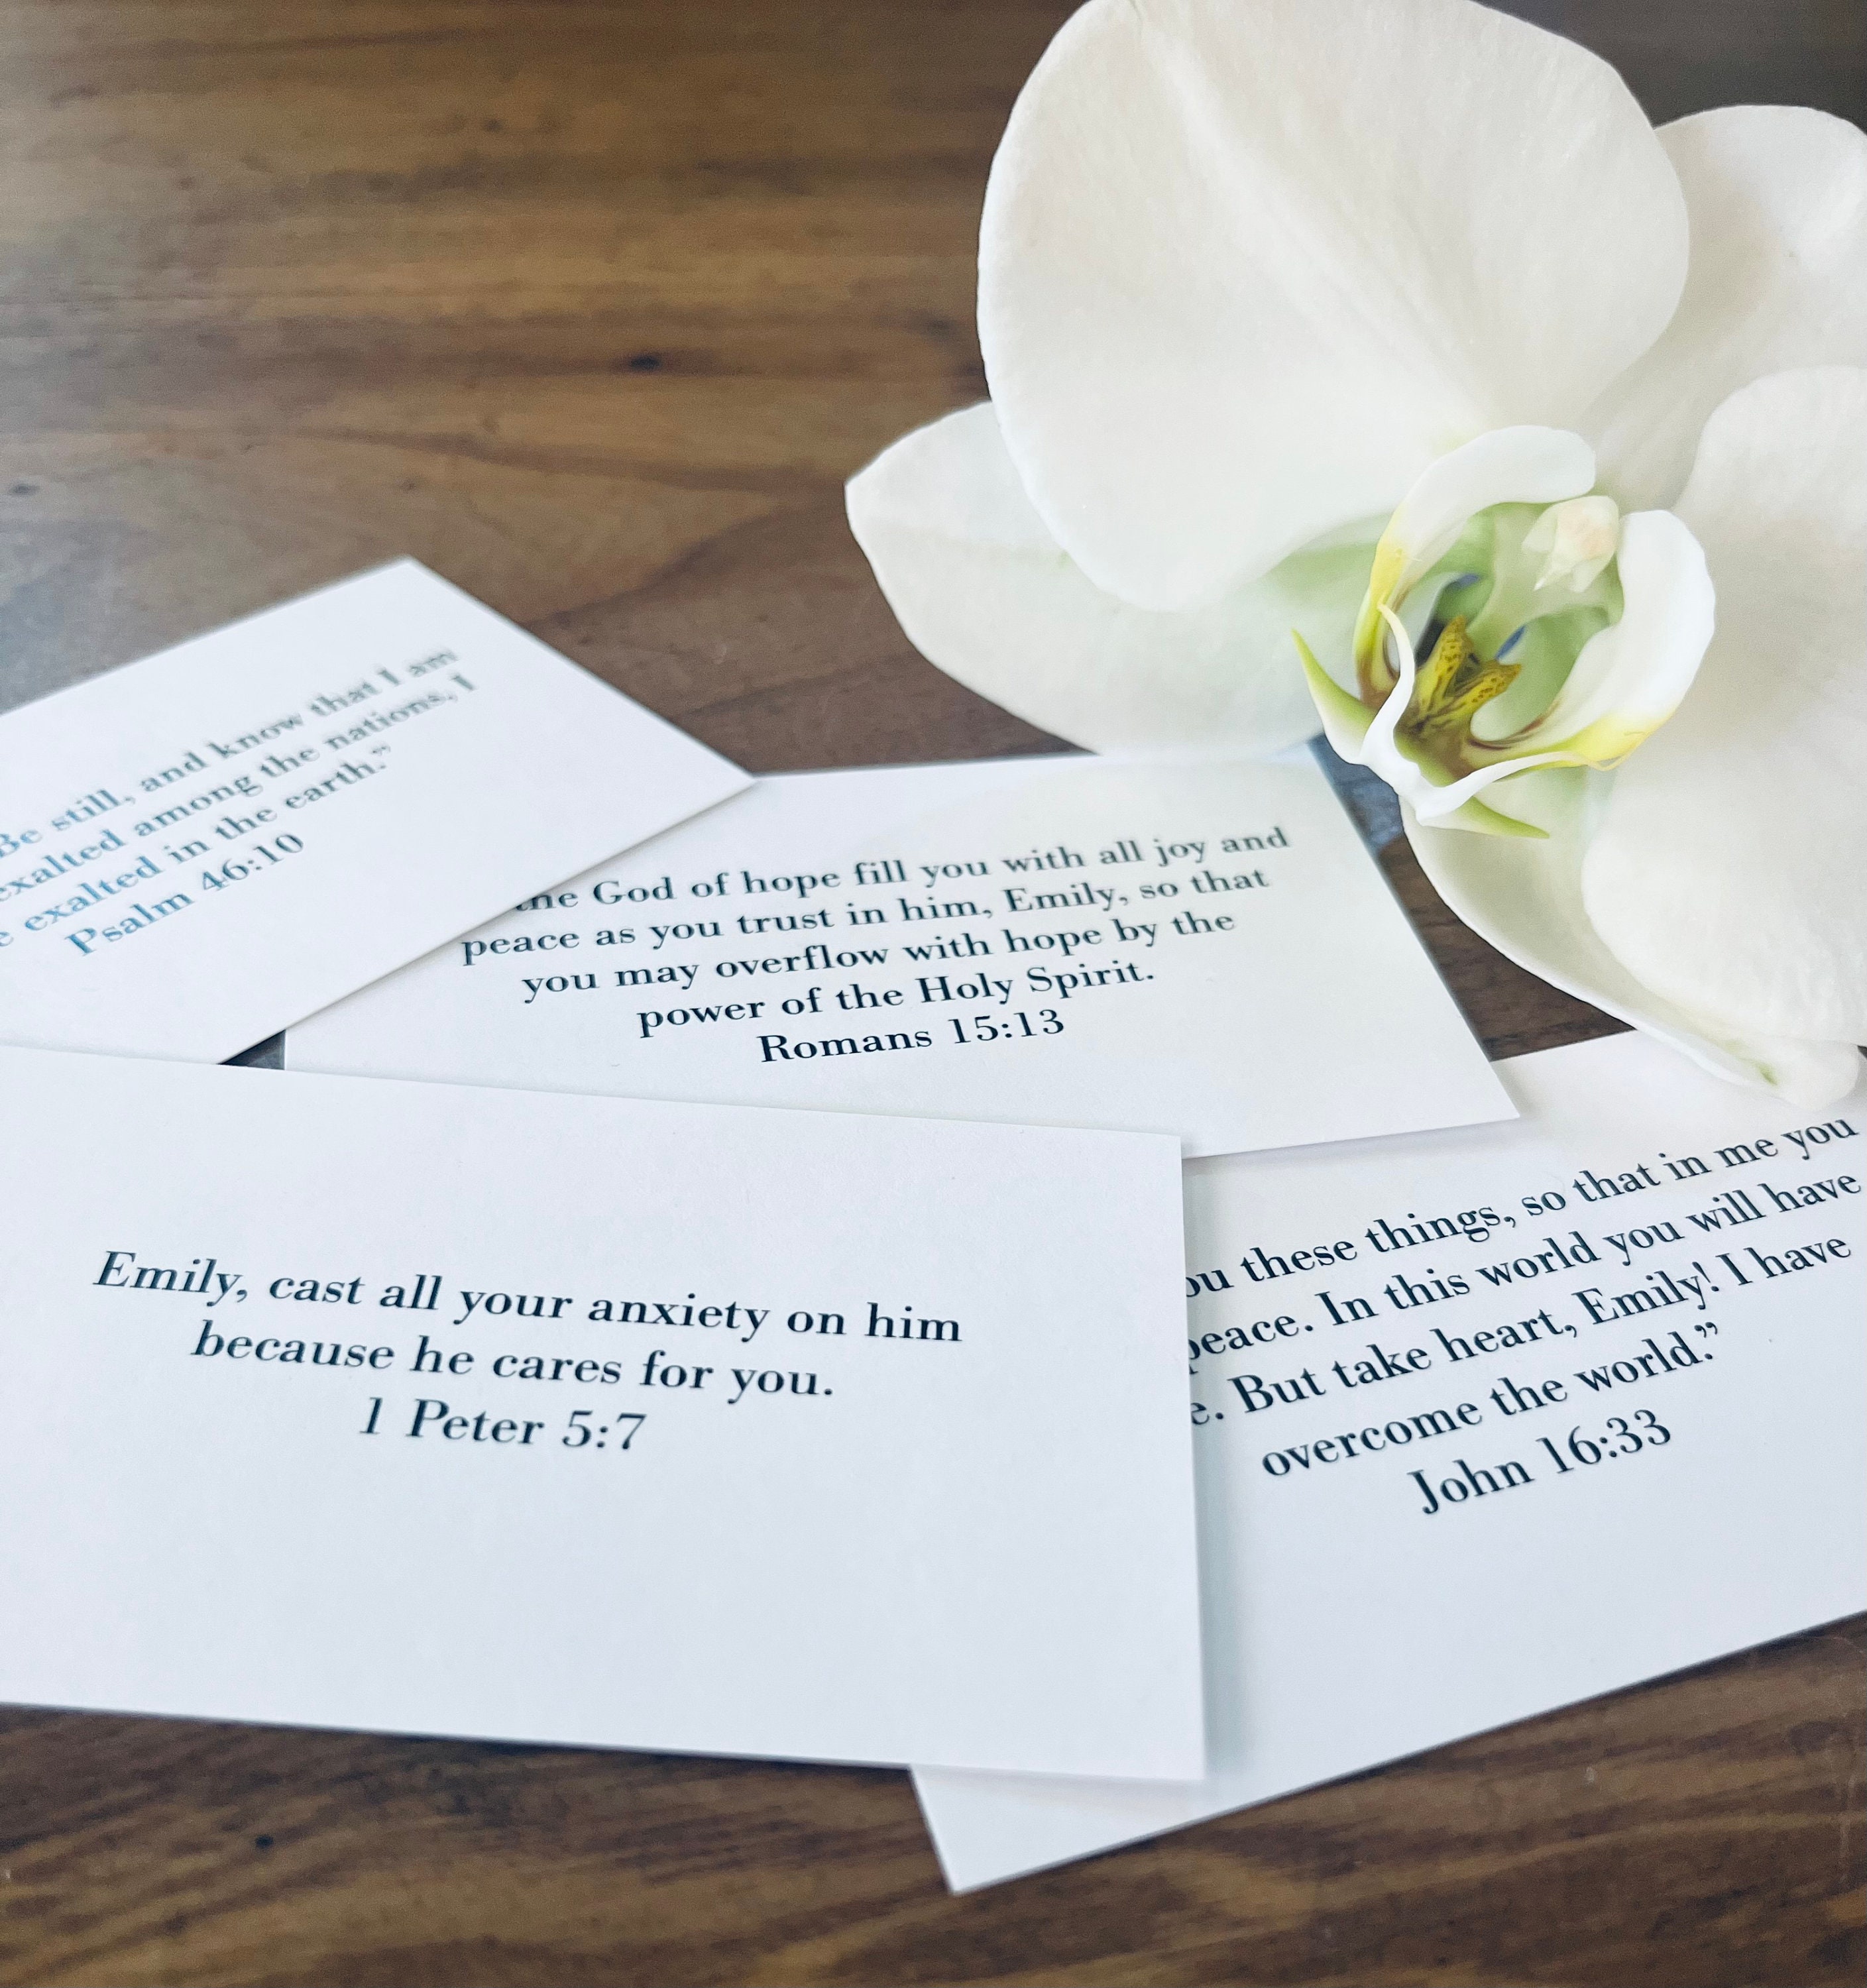 Be still, and know that I am
exalted among the nations, I
exalted in the earth.”
Psalm 46:10
God of hope fill you with all joy and
peace as you trust in him, Emily, so that
you may overflow with hope by the
power of the Holy Spirit.
Romans 15:13
Emily, cast all your anxiety on him
because he cares for you.
1 Peter 5:7
these things, so that in me you
peace. In this world you will have
But take heart, Emily! I have
overcome the world.”
John 16:33